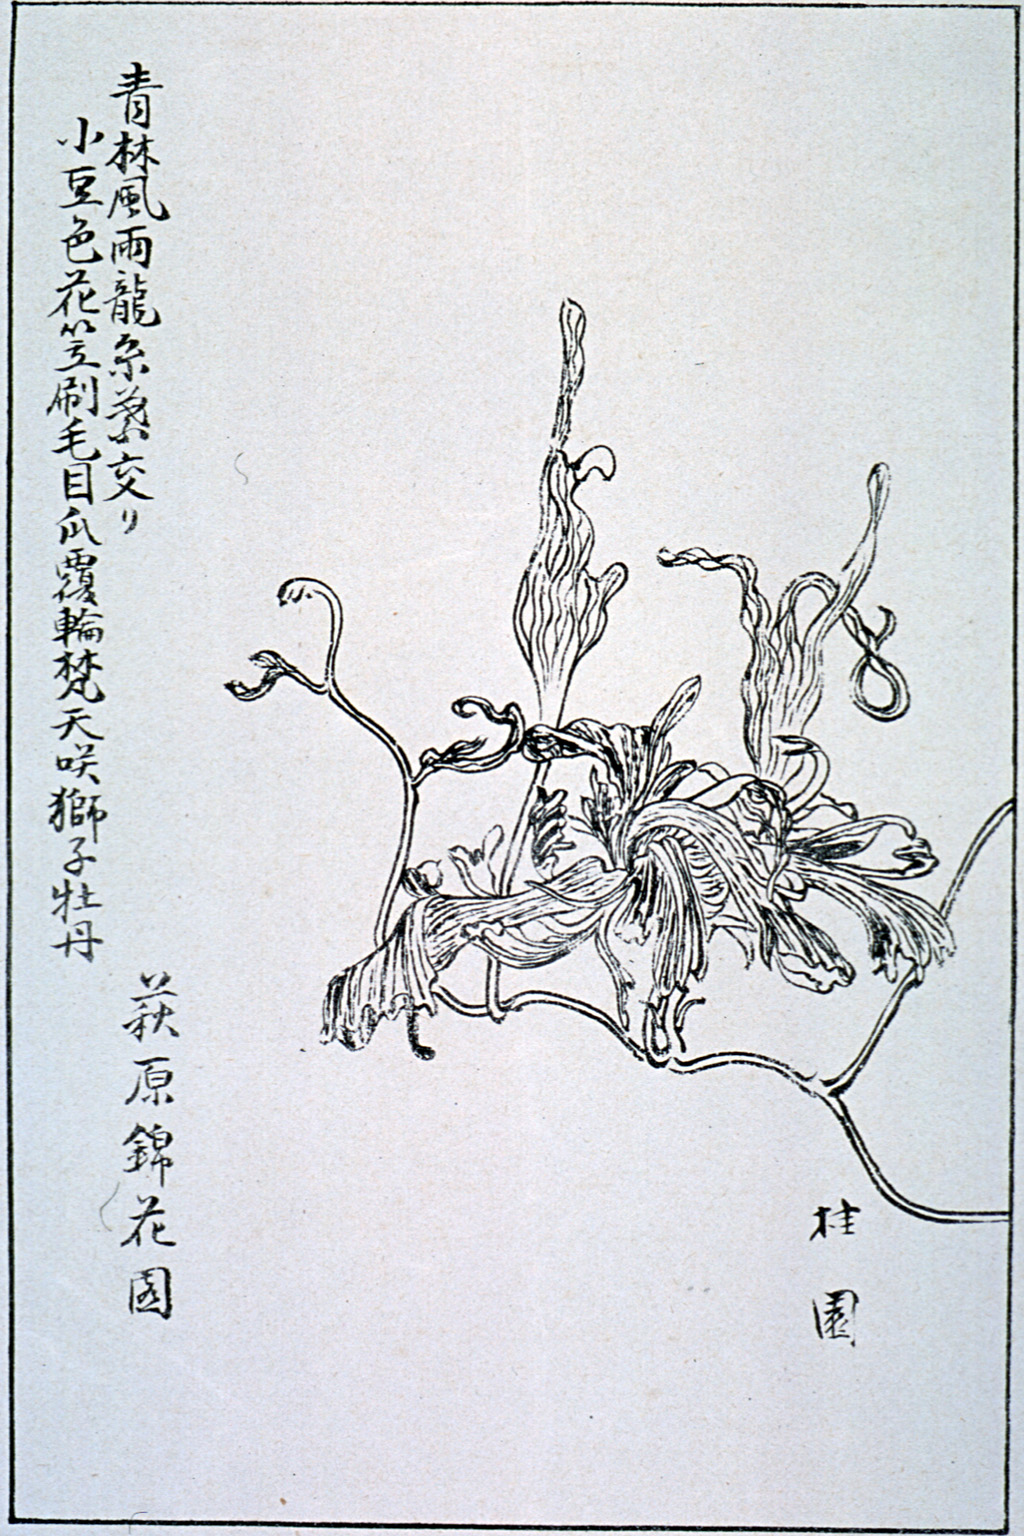 桂園
青林風雨龍糸葉交リ
小豆色花笠刷毛目爪覆輪梵天咲獅子牡丹
萩原錦花園